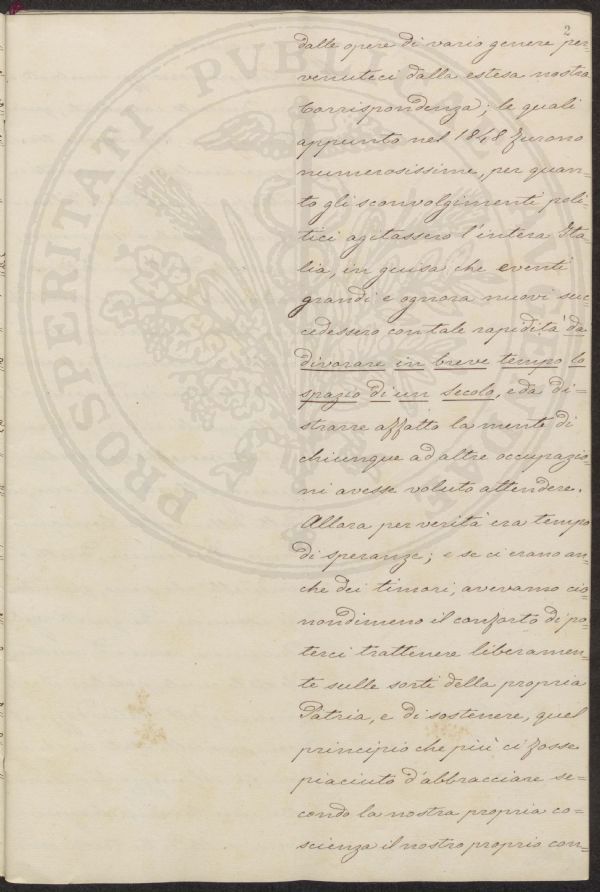 2
dalle opere di vario genere per=
venuteci dalla estesa nostra
Corrispondenza; le quali
appunto nel 1848 furono
numerosissime, per quan=
to gli sconvolgimenti poli=
tici agitassero l'intera Ita=
lia, in guisa che eventi
grandi e ognora nuovi suc
cedessero con tale rapidità da
divorare in breve tempo lo
spazio di un secolo, e da di=
strarre affatto la mente di
chiunque ad altre occupazio=
ni avesse voluto attendere.
Allora per verità era tempo
di speranze; e se ci erano an=
che dei timori, avevamo cio=
nondimeno il conforto di po=
terci trattenere liberamen=
te sulle sorti della propria
Patria, e di sostenere, quel
principio che più ci fosse
piaciuto d'abbracciare se=
condo la nostra propria co=
scienza il nostro proprio con=
PROSPERITATI PVBLICAE